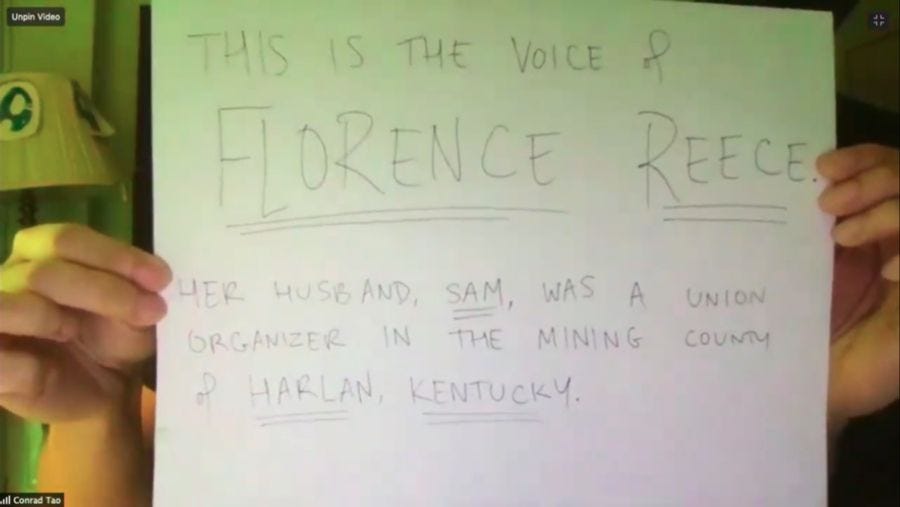 Unpin Video
THIS IS THE VOICE of
FLORENCE REECE.
HER HUSBAND, SAM, WAS A UNION
ORGANIZER IN THE MINING COUNTY
of HARLAN, KENTUCKY.
Conrad Tao